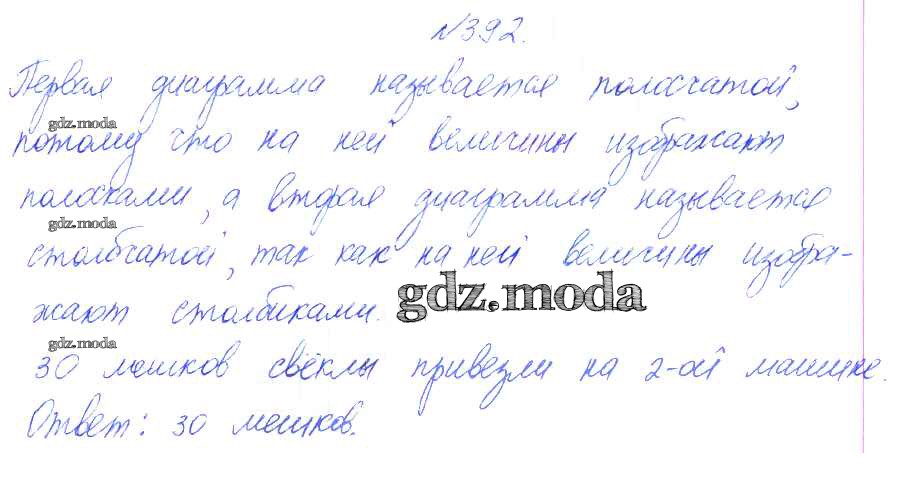 №392.
Первая диаграмма называется полосчатой,
gdz.moda
потому что на ней величины изображают
полосками, а вторая диаграмма называется
gdz.moda
столбчатой, так как на ней величины изобра-
жают столбиками.
gdz.moda
gdz.moda
30 мешков свёклы привезли на 2-ой машине.
Ответ: 30 мешков.